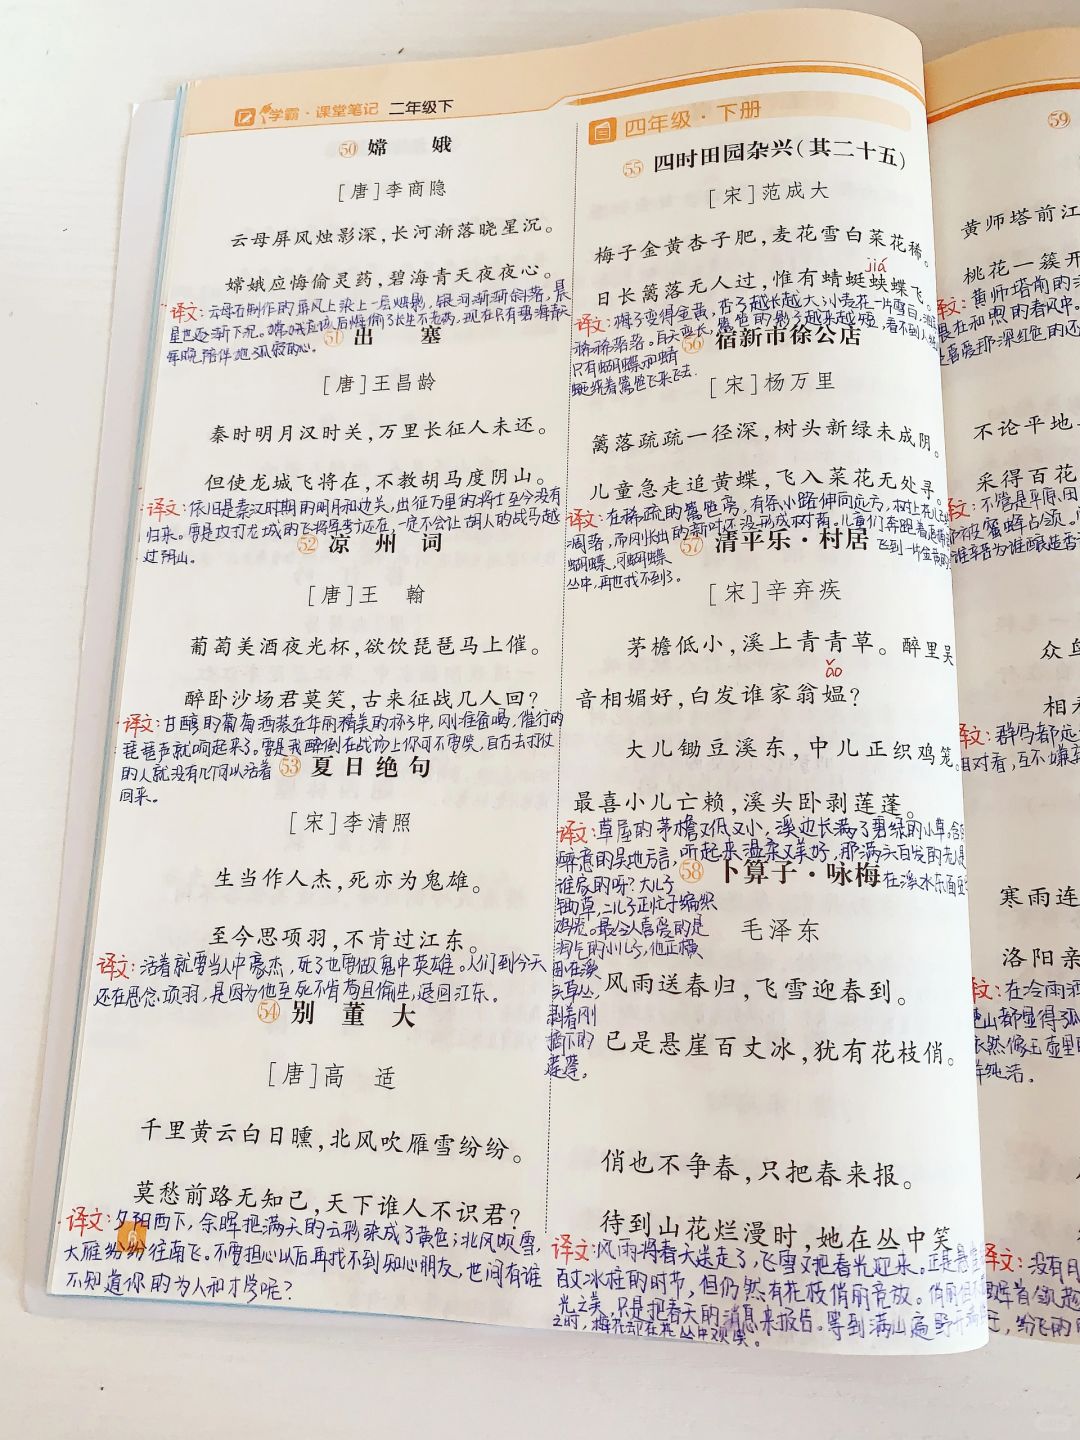 学霸·课堂笔记 二年级下
50 嫦 娥
[唐]李商隐
云母屏风烛影深,长河渐落晓星沉。
嫦娥应悔偷灵药,碧海青天夜夜心。
译文:云母石制作的屏风上染上一层烛影,银河渐渐斜落,晨
星也逐渐下沉。嫦娥应该后悔偷了长生不老药,现在只有碧海青天
年晚陪伴她孤寂的心。
51 出 塞
[唐]王昌龄
秦时明月汉时关,万里长征人未还。
但使龙城飞将在,不教胡马度阴山。
译文:依旧是秦汉时期的明月和边关,出征万里的将士至今没有
归来。要是攻打龙城的飞将军李广还在,一定不会让胡人的战马越
过阴山。
52 凉 州 词
[唐]王 翰
葡萄美酒夜光杯,欲饮琵琶马上催。
醉卧沙场君莫笑,古来征战几人回?
译文:甘醇的葡萄酒装在华丽精美的杯子中,刚准备喝,催行的
琵琶声就响起来了。要是我醉倒在战场上你可不要笑,自古去打仗
的人就没有几个可以活着
回来。
53 夏日绝句
[宋]李清照
生当作人杰,死亦为鬼雄。
至今思项羽,不肯过江东。
译文:活着就要当人中豪杰,死了也要做鬼中英雄。人们到今天
还在思念项羽,是因为他至死不肯苟且偷生,退回江东。
54 别 董 大
[唐]高 适
千里黄云白日曛,北风吹雁雪纷纷。
莫愁前路无知己,天下谁人不识君?
译文:夕阳西下,余晖把满天的云彩染成了黄色;北风吹雪,
大雁纷纷往南飞。不要担心以后再找不到知心朋友,世间有谁
不知道你的为人和才学呢?
6
四年级·下册
55 四时田园杂兴(其二十五)
[宋]范成大
梅子金黄杏子肥,麦花雪白菜花稀。
jiá
日长篱落无人过,惟有蜻蜓蛱蝶飞。
译文:梅子变得金黄,杏子越长越大;小麦花一片雪白,
稀稀落落。白天变长,篱笆的影子越来越短,看不到人
只有蝴蝶和蜻
蜓绕着篱笆飞来飞去.
56 宿新市徐公店
[宋]杨万里
篱落疏疏一径深,树头新绿未成阴。
儿童急走追黄蝶,飞入菜花无处寻。
译文:在稀疏的篱笆旁,有条小路伸向远方,树上花儿已经
凋落,而刚长出的新叶还没形成树荫。儿童们奔跑着追捕
蝴蝶,可蝴蝶
飞到一片金黄的
丛中,再也找不到了。
57 清平乐·村居
[宋]辛弃疾
茅檐低小,溪上青青草。醉里吴
ǎo
音相媚好,白发谁家翁媪?
大儿锄豆溪东,中儿正织鸡笼。
最喜小儿亡赖,溪头卧剥莲蓬。
译文:草屋的茅檐又低又小,溪边长满了碧绿的小草。含
醉意的吴地方言,听起来温柔又美好,那满头白发的老人是
谁家的呀?大儿子
在溪水东面
锄草,二儿子正忙于编织
鸡笼。最令人喜爱的是
淘气的小儿子,他正横
卧在溪
头草丛,
剥着刚
摘下的
莲蓬。
58 卜算子·咏梅
毛泽东
风雨送春归,飞雪迎春到。
已是悬崖百丈冰,犹有花枝俏。
俏也不争春,只把春来报。
待到山花烂漫时,她在丛中笑
译文:风雨将春天送走了,飞雪又把春光迎来。正是悬
百丈冰柱的时节,但仍然有花枝俏丽竞放。俏丽但不
光之美,只是把春天的消息来报告。等到满山遍野开满
之时,梅花却在花丛中欢笑。
59
黄师塔前江
桃花一簇开
译文:黄师塔前的
不论平地
采得百花
译文:不管是平原
众鸟
相看
译文:群鸟都远
相对看,互不嫌
寒雨连
洛阳亲
译文:在冷雨洒
译文:没有月